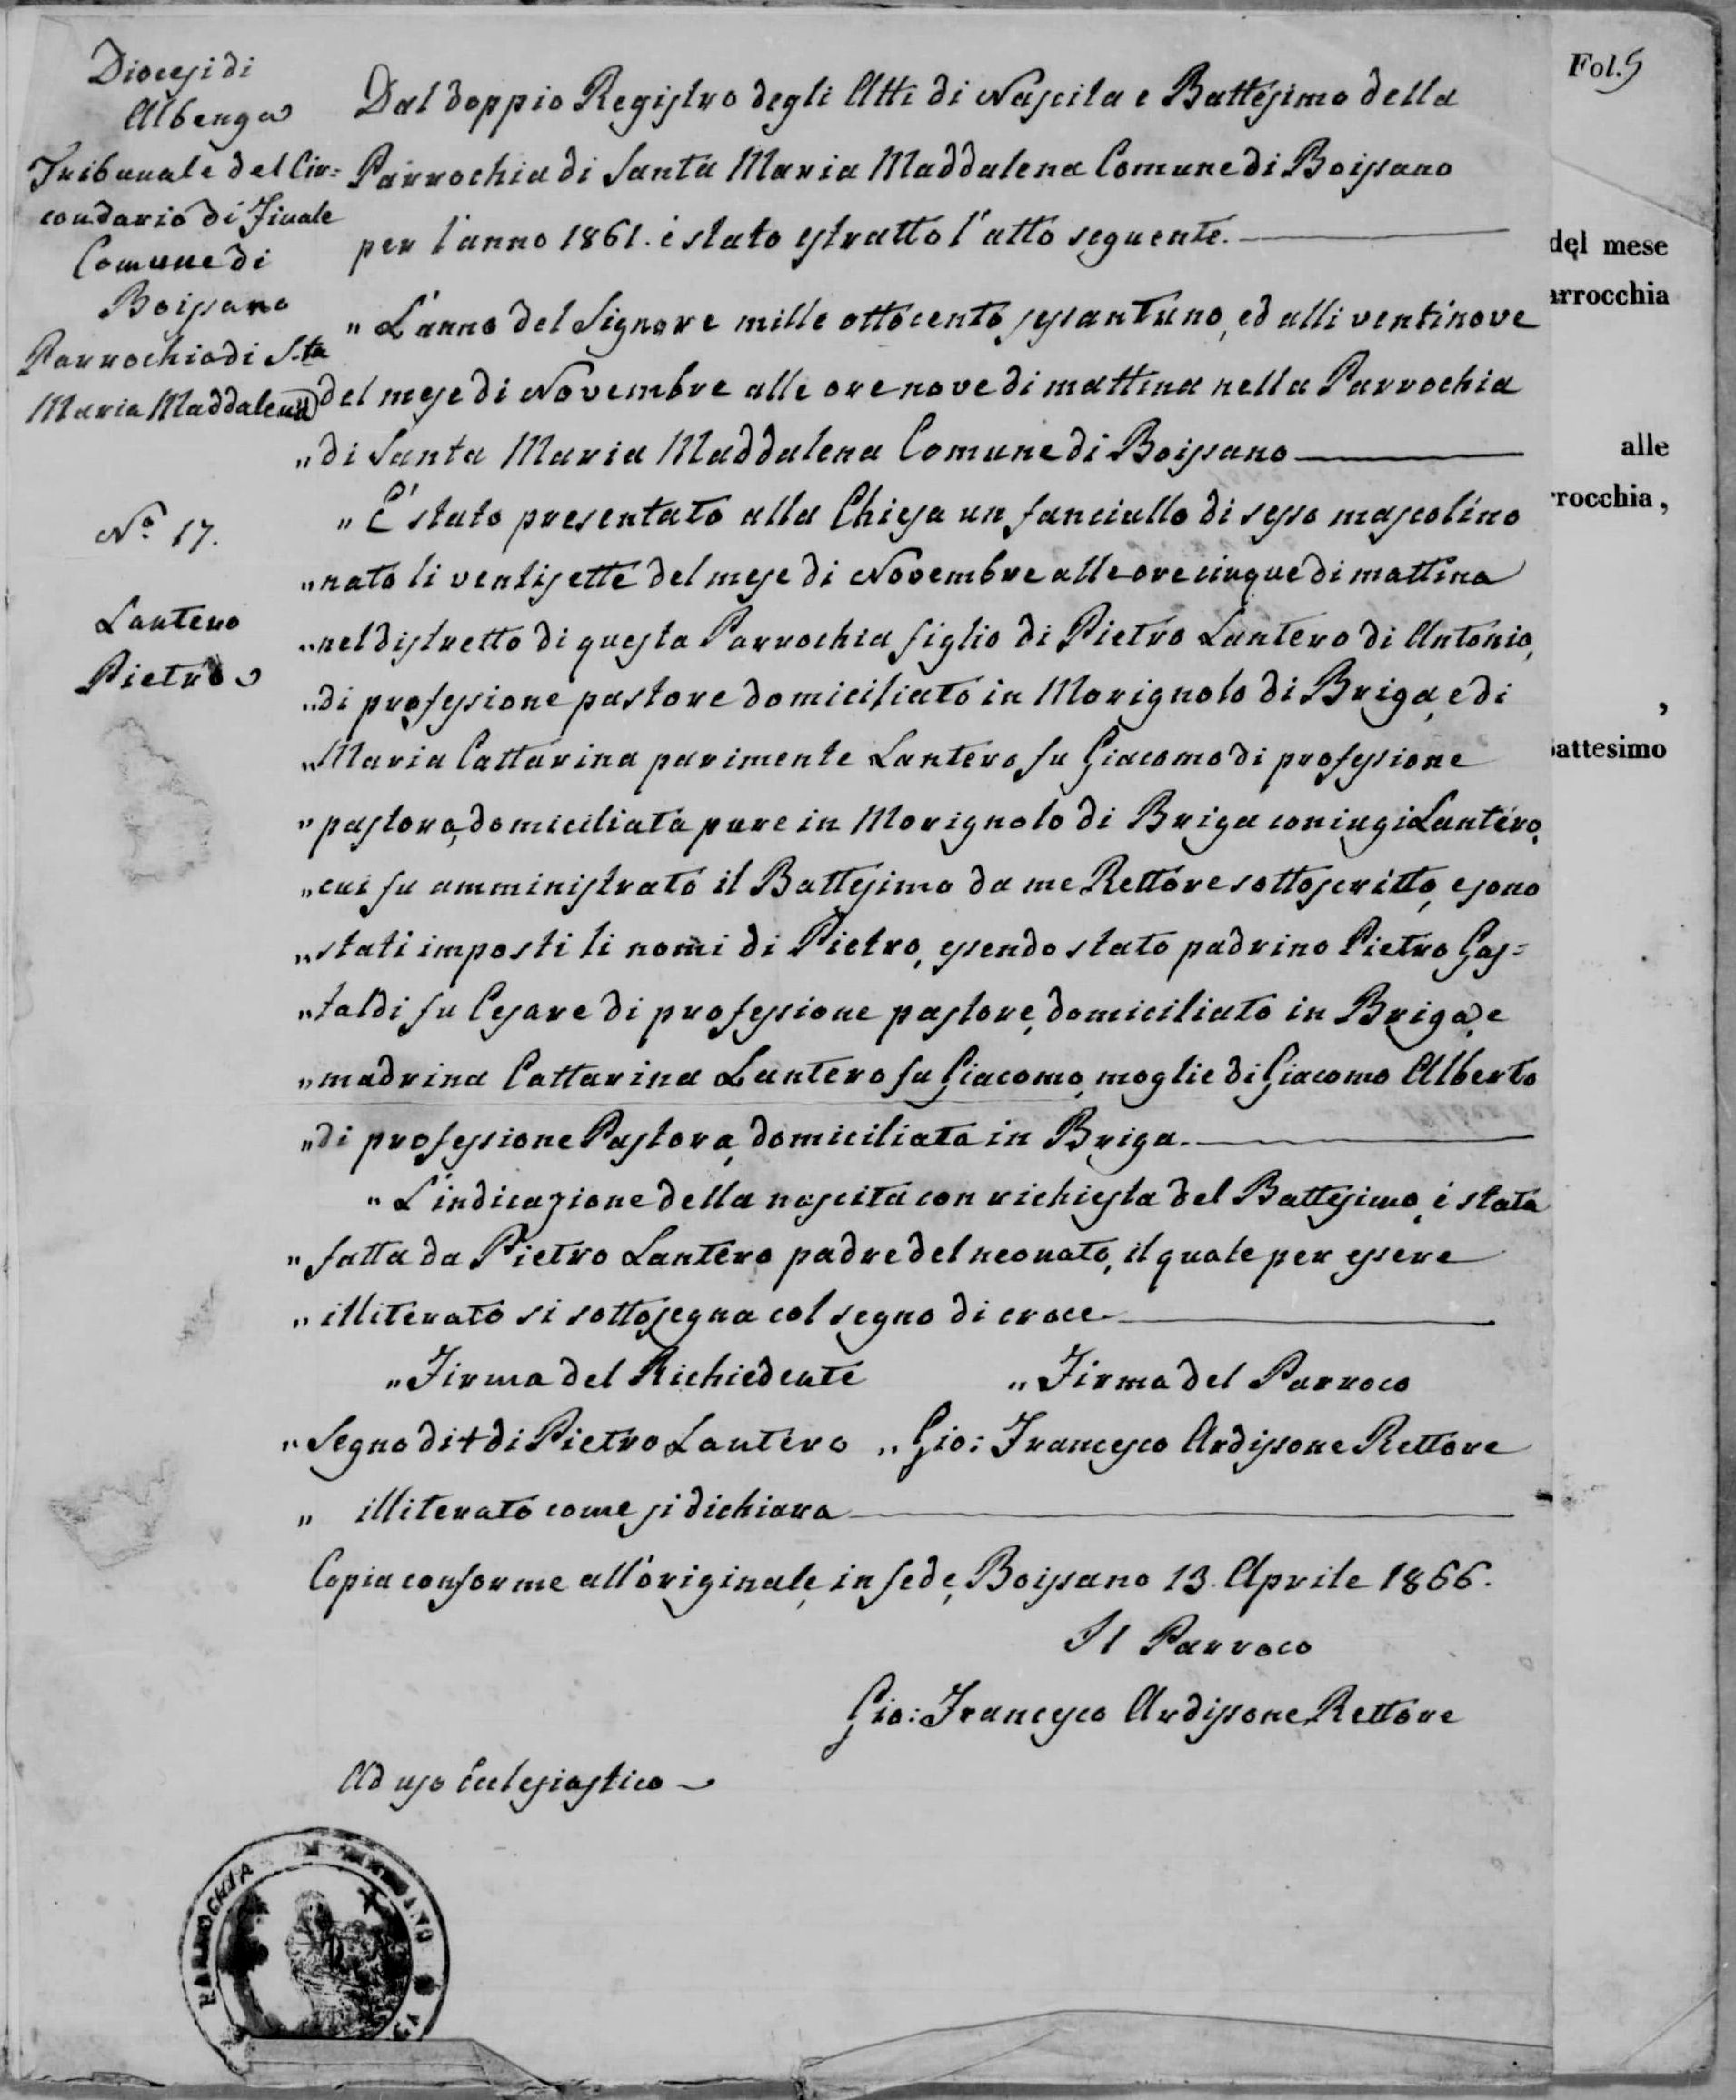 Fol. 5
Diocesi di
Albenga
Tribunale del Cir=
condario di Finale
Comune di
Boissano
Parrochia di S.ta
Maria Maddalena
N.º 17.
Lantero
Pietro
Dal doppio Registro degli Atti di Nascita e Battesimo della
Parrochia di Santa Maria Maddalena Comune di Boissano
per l'anno 1861. è stato estratto l'atto seguente.
" L'anno del Signore mille ottocento sessantuno, ed alli ventinove
del mese di Novembre alle ore nove di mattina nella Parrochia
" di Santa Maria Maddalena Comune di Boissano
" E' stato presentato alla Chiesa un fanciullo di sesso mascolino
" nato li ventisette del mese di Novembre alle ore cinque di mattina
" nel distretto di questa Parrochia figlio di Pietro Lantero di Antonio,
" di professione pastore domiciliato in Morignolo di Briga, e di
" Maria Cattarina parimente Lantero fu Giacomo di professione
" pastora, domiciliata pure in Morignolo di Briga coniugi Lantero,
" cui fu amministrato il Battesimo da me Rettore sottoscritto, e sono
" stati imposti li nomi di Pietro, essendo stato padrino Pietro Gas=
" taldi fu Cesare di professione pastore, domiciliato in Briga, e
" madrina Cattarina Lantero fu Giacomo, moglie di Giacomo Alberto
" di professione Pastora, domiciliata in Briga.
" L'indicazione della nascita con richiesta del Battesimo, è stata
" fatta da Pietro Lantero padre del neonato, il quale per essere
" illiterato si sottosegna col segno di croce
" Firma del Richiedente " Firma del Parroco
" Segno di + di Pietro Lantero " Gio: Francesco Ardissone Rettore
" illiterato come si dichiara
Copia conforme all'originale, in fede, Boissano 13. Aprile 1866.
Il Parroco
Gio: Francesco Ardissone Rettore
Ad uso Ecclesiastico
PARROCHIA
del mese
arrocchia
alle
rrocchia,
,
attesimo